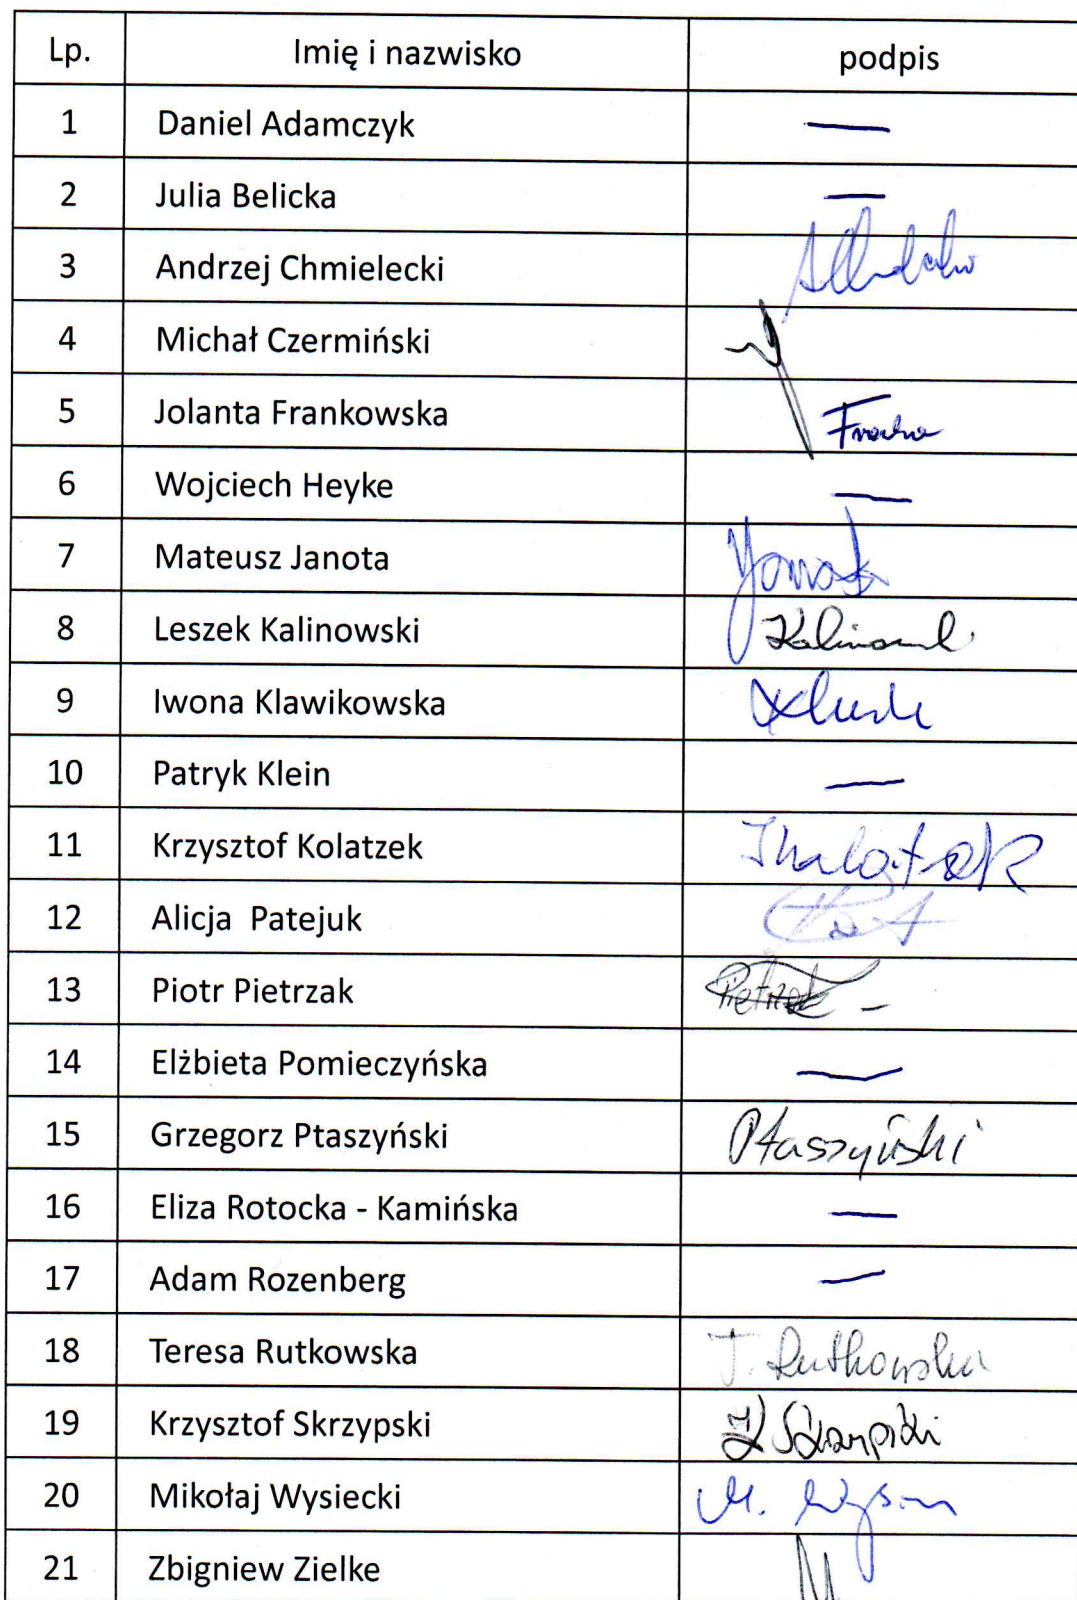 Lp. Imię i nazwisko podpis
1 Daniel Adamczyk —
2 Julia Belicka —
3 Andrzej Chmielecki
4 Michał Czermiński
5 Jolanta Frankowska
6 Wojciech Heyke —
7 Mateusz Janota
8 Leszek Kalinowski
9 Iwona Klawikowska
10 Patryk Klein —
11 Krzysztof Kolatzek
12 Alicja Patejuk
13 Piotr Pietrzak Pietrzak
14 Elżbieta Pomieczyńska —
15 Grzegorz Ptaszyński Ptaszyński
16 Eliza Rotocka - Kamińska —
17 Adam Rozenberg —
18 Teresa Rutkowska T. Rutkowska
19 Krzysztof Skrzypski
20 Mikołaj Wysiecki
21 Zbigniew Zielke